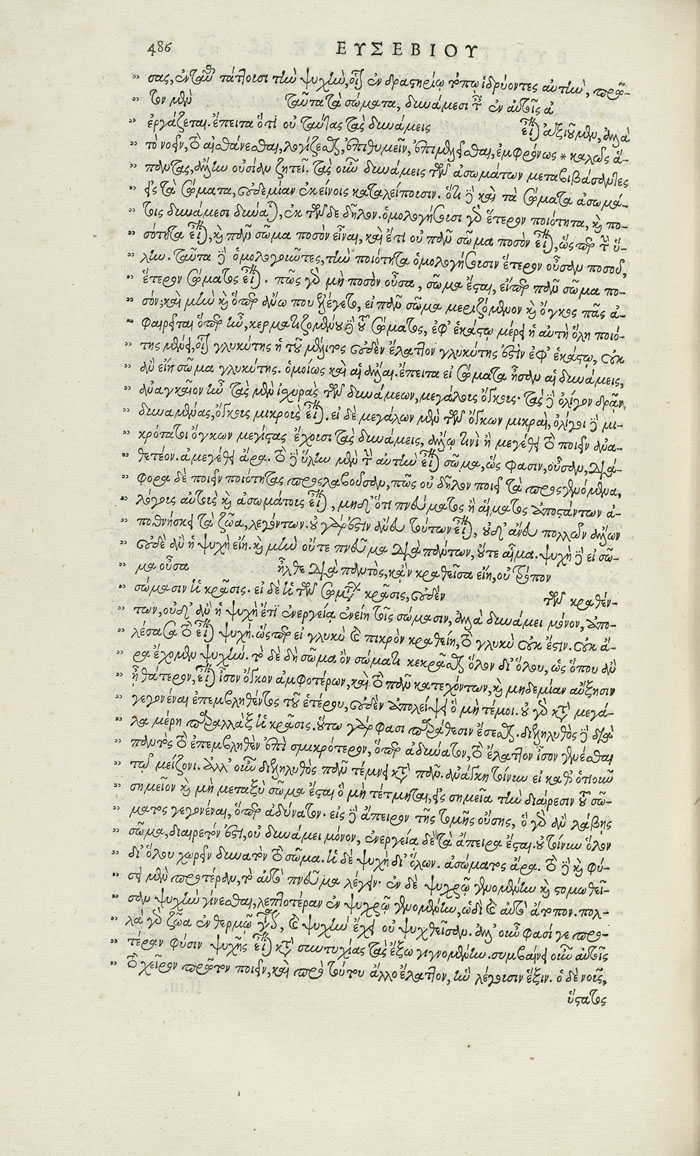 486 ΕΥΣΕΒΙΟΥ
„ σας, ἐνταῦθα τάττουσι τὴν ψυχὴν, οἷον ἐν δραστηρίῳ τόπῳ ἱδρύοντες αὐτὴν, πρῶ-
„ τον μὲν ταῦτα τὰ σώματα, δυνάμεσι ταῖς ἐν αὐτοῖς ἀ
„ ἐργάζεται. ἔπειτα ὅτι οὐ ταύτας τὰς δυνάμεις εἶναι ἀξιοῦμεν, ἀλλὰ
„ τὸ νοεῖν, τὸ αἰσθάνεσθαι, λογίζεσθαι, ἐπιθυμεῖν, ἐπιμελεῖσθαι, ἐμφρόνως * καλῶς ἅ-
„ πάντας, ἄλλην οὐσίαν ζητεῖ. τὰς οὖν δυνάμεις τῶν ἀσωμάτων μεταβιβάσαντες
„ εἰς τὰ σώματα, οὐδεμίαν ἐκείνοις καταλείπουσιν. ὅτι δὲ καὶ τὰ σώματα ἀσωμά-
„ τοις δυνάμεσι δύναται, ἐκ τῶν δὲ δῆλον. ὁμολογήσουσι γὰρ ἕτερον ποιότητα, καὶ πο-
„ σότητα εἶναι, καὶ πᾶν σῶμα ποσὸν εἶναι, καὶ ἔτι οὐ πᾶν σῶμα ποσὸν εἶναι, ὥσπερ τὴν ὕ-
„ λην. ταῦτα δὲ ὁμολογοῦντες, τὴν ποιότητα ὁμολογήσουσιν ἕτερον οὖσαν ποσοῦ,
„ ἕτερον σώματος εἶναι. πῶς γὰρ μὴ ποσὸν οὖσα, σῶμα ἔσται, εἴπερ πᾶν σῶμα πο-
„ σόν; καὶ μὴν καὶ ὅπερ ἄνω που ἐλέγετο, εἰ πᾶν σῶμα μεριζόμενον καὶ ὄγκος πᾶς ἀ-
„ φαιρεῖται ὅπερ ἦν, κερματιζομένου δὲ τοῦ σώματος, ἐφ᾽ ἑκάστῳ μέρει ἡ αὐτὴ ὅλη ποιό-
„ της μένει, οἷον γλυκύτης ἡ τοῦ μέλιτος οὐδὲν ἔλαττον γλυκύτης ἐστὶν ἐφ᾽ ἑκάστῳ, οὐκ
„ ἂν εἴη σῶμα γλυκύτης. ὁμοίως καὶ αἱ ἄλλαι. ἔπειτα εἰ σώματα ἦσαν αἱ δυνάμεις,
„ ἀναγκαῖον ἦν τὰς μὲν ἰσχυρὰς τῶν δυνάμεων, μεγάλους ὄγκους· τὰς δὲ ὀλίγον δρᾶν
„ δυναμένας, ὄγκους μικροὺς εἶναι. εἰ δὲ μεγάλων μὲν τῶν ὄγκων μικραὶ, ὀλίγοι δὲ μι-
„ κρότατοι ὄγκων μεγίστας ἔχουσι τὰς δυνάμεις, ἄλλῳ τινὶ ἢ μεγέθει τὸ ποιεῖν ἀνα-
„ θετέον. ἀμεγέθει ἄρα. τὸ δὲ ὕλην μὲν τὴν αὐτὴν εἶναι σῶμα, ὥς φασιν, οὖσαν, διά-
„ φορα δὲ ποιεῖν ποιότητας προσλαβοῦσαν, πῶς οὐ δῆλον ποιεῖ τὰ προσγενόμενα,
„ λόγους αὐτοὺς καὶ ἀσωμάτους εἶναι, μηδ᾽ ὅτι πνεύματος ἢ αἵματος ἀποστάντων ἀ-
„ ποθνήσκει τὰ ζῶα, λεγόντων. οὐ γὰρ ἔστιν ἄνευ τούτων εἶναι, οὐδ᾽ ἄνευ πολλῶν ἄλλων
„ οὐδὲ ἂν ἡ ψυχὴ εἴη. καὶ μὴν οὔτε πνεῦμα διὰ πάντων, οὔτε αἷμα. ψυχὴ δὲ εἰ σῶ-
„ μα οὖσα ἦλθε διὰ παντὸς, κἂν κραθεῖσα εἴη, ὃν τρόπον
„ σώμασιν ἡ κρᾶσις. εἰ δὲ ἡ τῶν σωμάτων κρᾶσις, οὐδὲν τῶν κραθέν-
„ των, οὐδ᾽ ἂν ἡ ψυχὴ ἔτι ἐνεργείᾳ ἐνείη τοῖς σώμασιν, ἀλλὰ δυνάμει μόνον, ἀπο-
„ λέσασα τὸ εἶναι ψυχή. ὥσπερ εἰ γλυκὺ καὶ πικρὸν κραθείη, τὸ γλυκὺ οὐκ ἔστιν. οὐκ ἄ-
„ ρα ἔχομεν ψυχήν. τὸ δὲ δὴ σῶμα ὂν σώματι κεκρᾶσθαι ὅλον δι᾽ ὅλου, ὡς ὅπου ἂν
„ ᾖ θάτερον, εἶναι ἶσον ὄγκον ἀμφοτέρων, καὶ τὸ πᾶν κατεχόντων, καὶ μηδεμίαν αὔξησιν
„ γεγονέναι ἐπεμβληθέντος τοῦ ἑτέρου, οὐδὲν ἀπολείψει ὃ μὴ τέμοι. οὐ γὰρ κατὰ μεγά-
„ λα μέρη παραλλὰξ ἡ κρᾶσις. οὕτω γάρ φασι παράθεσιν ἔσεσθαι. διεληλυθὸς δὲ διὰ
„ παντὸς τὸ ἐπεμβληθὲν ἐπὶ σμικρότερον, ὅπερ ἀδύνατον, τὸ ἔλαττον ἶσον γενέσθαι
„ τῷ μείζονι. ἀλλ᾽ οὖν διεληλυθὸς πᾶν τέμνει κατὰ πᾶν. ἀνάγκη τοίνυν εἰ καθ᾽ ὁτιοῦν
„ σημεῖον καὶ μὴ μεταξὺ σῶμα ἔσται ὃ μὴ τέτμηται, εἰς σημεῖα τὴν διαίρεσιν τοῦ σώ-
„ ματος γεγονέναι, ὅπερ ἀδύνατον. εἰς δὲ ἄπειρον τῆς τομῆς οὔσης, ὃ γὰρ ἂν λάβῃς
„ σῶμα, διαιρετόν ἐστι, οὐ δυνάμει μόνον, ἐνεργείᾳ δὲ τὰ ἄπειρα ἔσται. οὐ τοίνυν ὅλον
„ δι᾽ ὅλου χωρεῖν δυνατὸν τὸ σῶμα. ἡ δὲ ψυχὴ δι᾽ ὅλων. ἀσώματος ἄρα. τὸ δὲ καὶ φύ-
„ σιν μὲν προτέραν, τὸ αὐτὸ πνεῦμα λέγειν. ἐν δὲ ψυχρῷ γενομένην καὶ τομωθεῖ-
„ σαν ψυχὴν γίνεσθαι, λεπτοτέραν ἐν ψυχρῷ γενομένην, ὃ δὴ καὶ αὐτὸ ἄτοπον. πολ-
„ λὰ γὰρ ζῶα ἐν θερμῷ γίνεται, καὶ ψυχὴν ἔχει οὐ ψυχθεῖσαν. ἀλλ᾽ οὖν φασί γε προ-
„ τέραν φύσιν ψυχῆς εἶναι κατὰ συντυχίας τὰς ἔξω γιγνομένην. συμβαίνει οὖν αὐτοῖς
„ τὸ χεῖρον πρῶτον ποιεῖν, καὶ πρὸ τούτου ἄλλο ἔλαττον, ἣν λέγουσιν ἕξιν. ὁ δὲ νοῦς,
ὕστατος